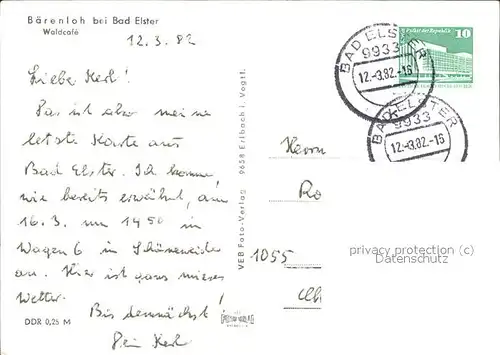 Bärenloh bei Bad Elster
Waldcafé
12.3.82
Lieber Karl!
Das ist aber meine
letzte Karte aus
Bad Elster. Ich komme,
wie bereits erwähnt, am
16.3. um 14 50 in
Wagen 6 in Schöneweide
an. Hier ist ganz mieses
Wetter.
Bis demnächst!
Dein Karl
DDR 0,25 M
VEB Foto-Verlag 9658 Erlbach i. Vogtl.
FOTO-VERLAG
ERLBACH
BAD ELSTER
9933
12.-3.82.-16
BAD ELSTER
9933
12.-3.82.-16
Palast der Republik 10
Herrn
Ro
1055
privacy protection (c)
Datenschutz